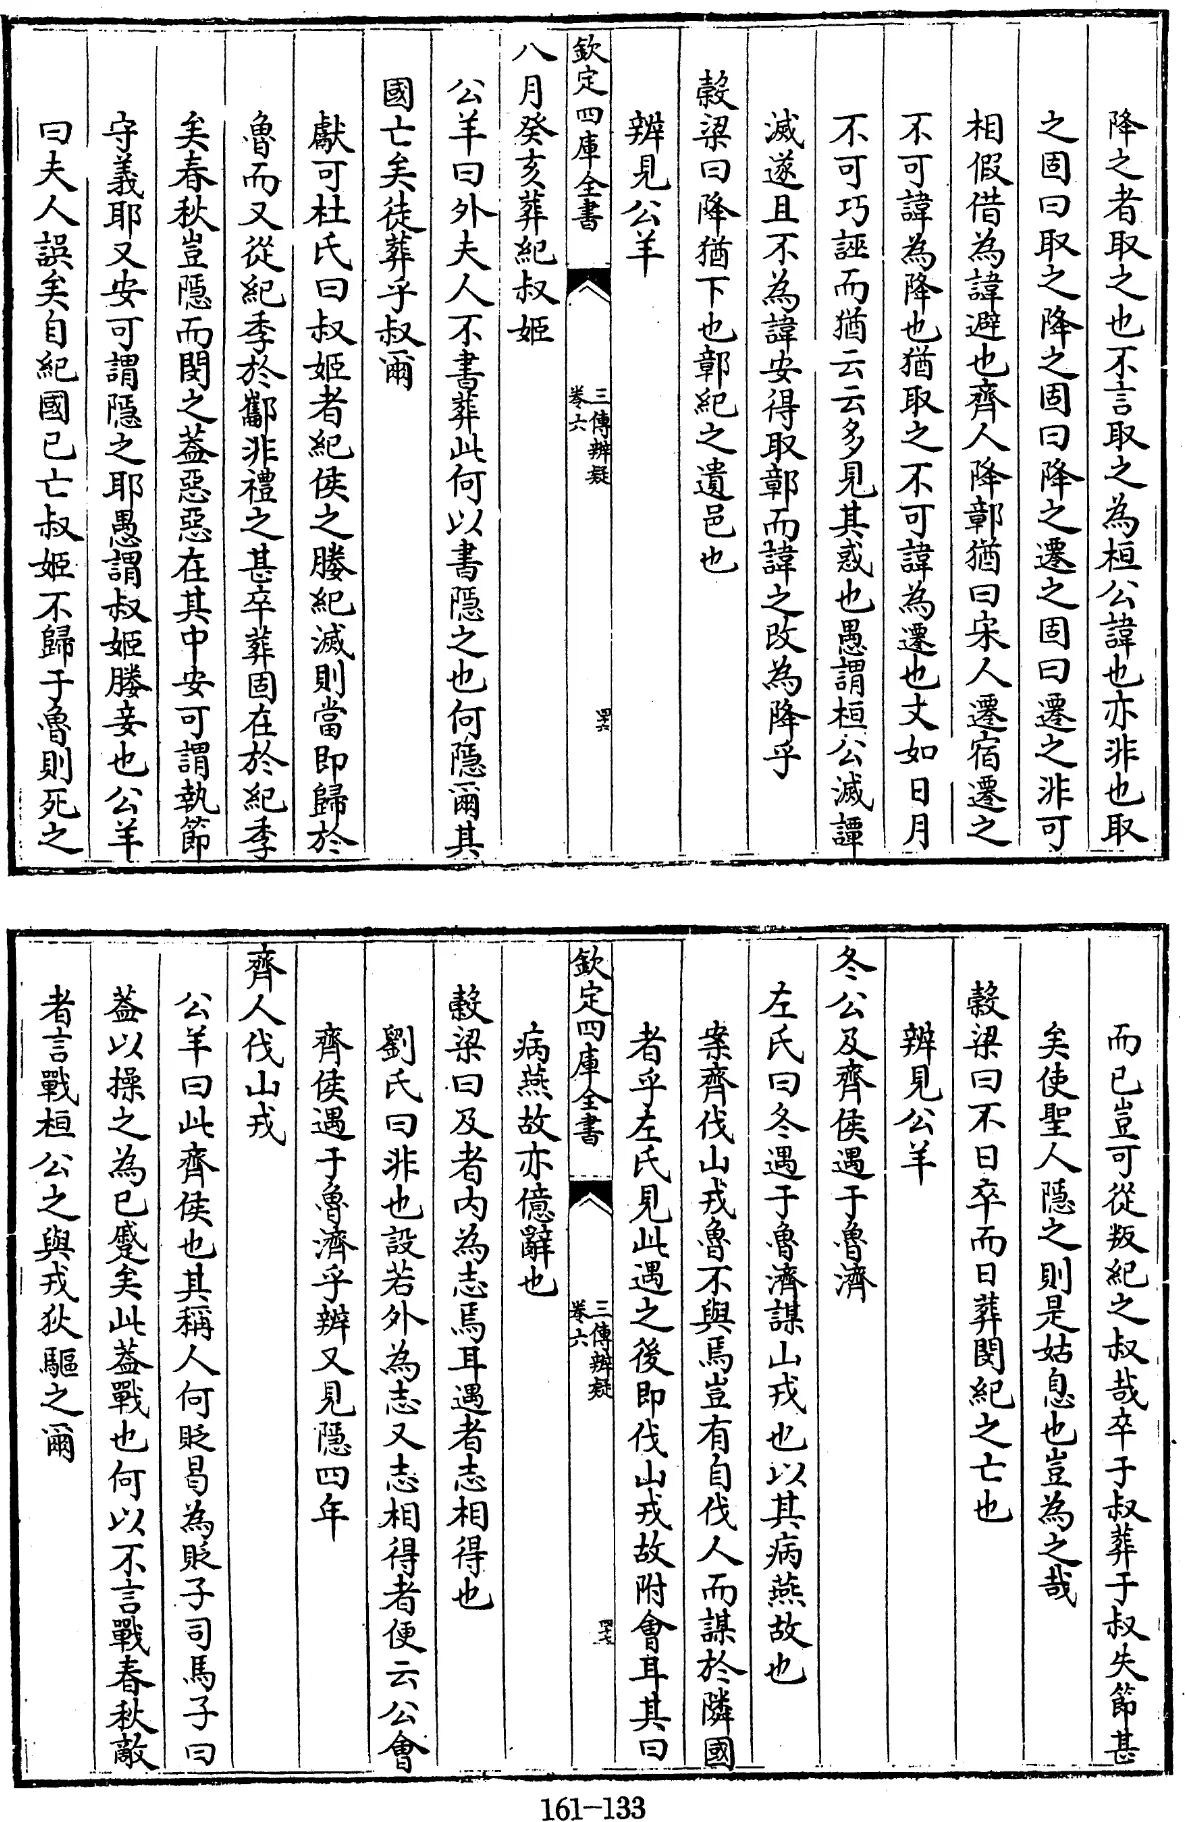 降之者取之也不言取之為桓公諱也亦非也取
之固曰取之降之固曰降之遷之固曰遷之非可
相假借為諱避也齊人降鄣猶曰宋人遷宿遷之
不可諱為降也猶取之不可諱為遷也丈如日月
不可巧誣而猶云云多見其惑也愚謂桓公滅譚
滅遂且不為諱安得取鄣而諱之改為降乎
榖梁曰降猶下也鄣紀之遺邑也
辨見公羊
欽定四庫全書
三傳辨疑
卷六
四六
八月癸亥葬紀叔姬
公羊曰外夫人不書葬此何以書隠之也何隠爾其
國亡矣徒葬乎叔爾
獻可杜氏曰叔姬者紀侯之媵紀滅則當即歸於
魯而又從紀季於酅非禮之甚卒葬固在於紀季
矣春秋豈隠而閔之葢惡惡在其中安可謂執節
守義耶又安可謂隠之耶愚謂叔姬媵妾也公羊
曰夫人誤矣自紀國已亡叔姬不歸于魯則死之
而已豈可從叛紀之叔哉卒于叔葬于叔失節甚
矣使聖人隠之則是姑息也豈為之哉
榖梁曰不日卒而日葬閔紀之亡也
辨見公羊
冬公及齊侯遇于魯濟
左氏曰冬遇于魯濟謀山戎也以其病燕故也
案齊伐山戎魯不與焉豈有自伐人而謀於隣國
者乎左氏見此遇之後即伐山戎故附會耳其曰
欽定四庫全書
三傳辨疑
卷六
四七
病燕故亦億辭也
榖梁曰及者内為志焉耳遇者志相得也
劉氏曰非也設若外為志又志相得者便云公會
齊侯遇于魯濟乎辨又見隠四年
齊人伐山戎
公羊曰此齊侯也其稱人何貶曷為貶子司馬子曰
葢以操之為已蹙矣此葢戰也何以不言戰春秋敵
者言戰桓公之與戎狄驅之爾
161-133